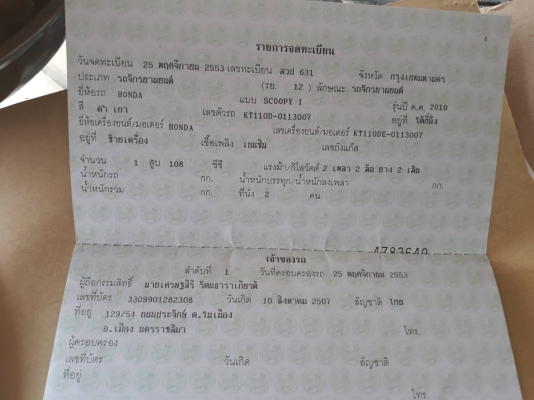 4
รายการจดทะเบียน
วันจดทะเบียน 25 พฤศจิกายน 2553 เลขทะเบียน สวย 631 จังหวัด กรุงเทพมหานคร
ประเภท รถจักรยานยนต์ (รย. 12 ) ลักษณะ รถจักรยานยนต์
ยี่ห้อรถ HONDA แบบ SCOOPY I รุ่นปี ค.ศ. 2010
สี ดำ เทา เลขตัวรถ KT110D-0113007 อยู่ที่ ใต้ที่นั่ง
ยี่ห้อเครื่องยนต์/มอเตอร์ HONDA เลขเครื่องยนต์/มอเตอร์ KT110DE-0113007
อยู่ที่ ซ้ายเครื่อง เชื้อเพลิง เบนซิน เลขถังแก๊ส
จำนวน 1 สูบ 108 ซีซี แรงม้า/กิโลวัตต์ 2 เพลา 2 ล้อ ยาง 2 เส้น
น้ำหนักรถ กก. น้ำหนักบรรทุก/น้ำหนักลงเพลา กก.
น้ำหนักรวม กก. ที่นั่ง 2 คน
4783640
เจ้าของรถ
ลำดับที่ 1 วันที่ครอบครองรถ 25 พฤศจิกายน 2553
ผู้ถือกรรมสิทธิ์ นายเศรษฐสิริ
เลขที่บัตร 3309901282308 วันเกิด 10 สิงหาคม 2507 สัญชาติ ไทย
ที่อยู่ 129/54 ถนนประจักษ์ ต.ในเมือง
อ.เมือง นครราชสีมา โทร.
ผู้ครอบครอง
เลขที่บัตร วันเกิด สัญชาติ
ที่อยู่
โทร.